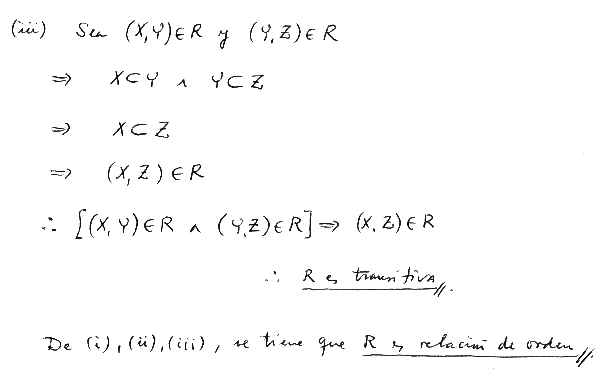 (iii) Sea (X,Y)∈R y (Y,Z)∈R
⇒ X⊂Y ∧ Y⊂Z
⇒ X⊂Z
⇒ (X,Z)∈R
∴ [(X,Y)∈R ∧ (Y,Z)∈R] ⇒ (X,Z)∈R
∴ R es transitiva//.
De (i), (ii), (iii), se tiene que R es relación de orden//.